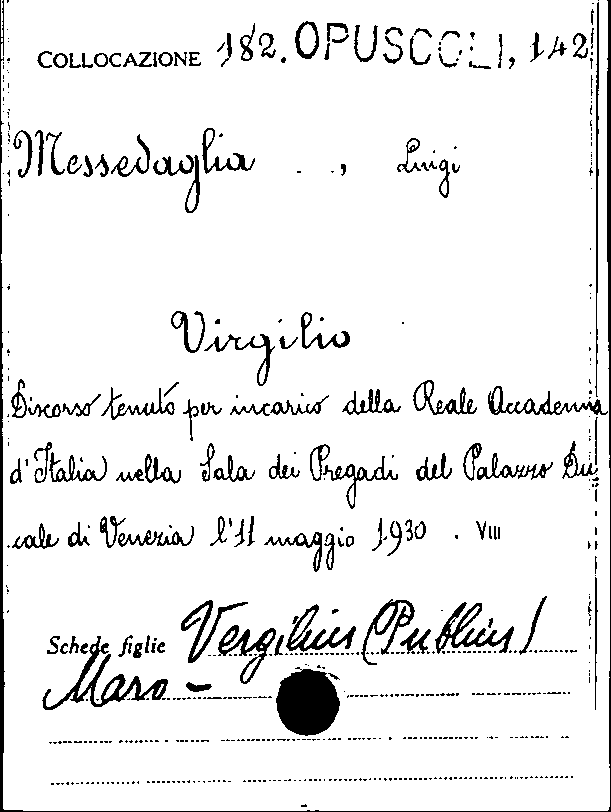 COLLOCAZIONE 182. OPUSCOLI, 142
Messedaglia , Luigi
Virgilio
Discorso tenuto per incarico della Reale Accademia
d'Italia nella Sala dei Pregadi del Palazzo Du
cale di Venezia l'11 maggio 1930 . VIII
Schede figlie Vergilius (Publius)
Maro -